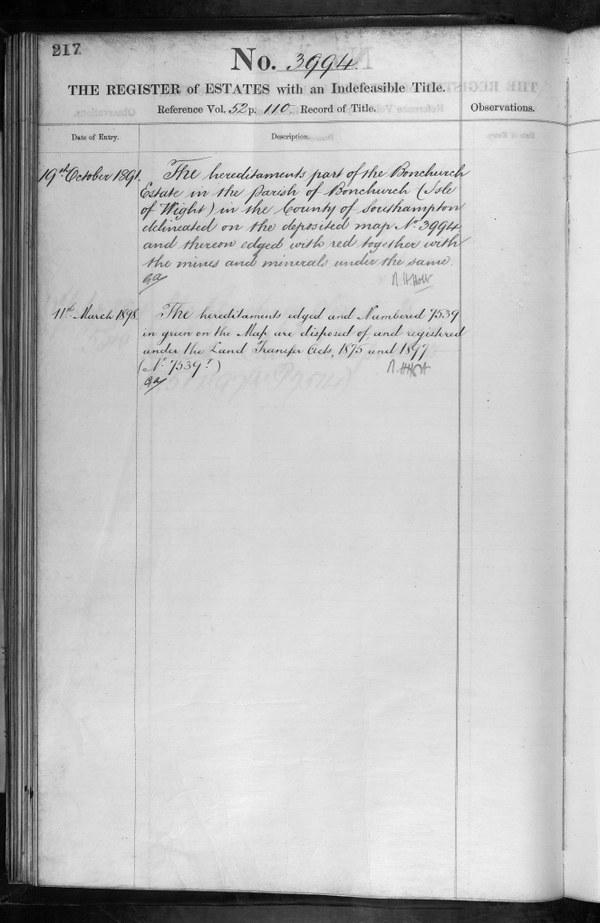 217
No. 3994
THE REGISTER of ESTATES with an Indefeasible Title.
Reference Vol. 52 p. 110. Record of Title.
Observations.
Date of Entry.
Description.
19th October 1891.
The hereditaments part of the Bonchurch
Estate in the parish of Bonchurch (Isle
of Wight) in the County of Southampton
delineated on the deposited map No. 3994
and thereon edged with red together with
the mines and minerals under the same.
11th March 1898.
The hereditaments edged and Numbered 7539
in green on the Map are disposed of and registered
under the Land Transfer Acts, 1875 and 1897
(No. 7539)